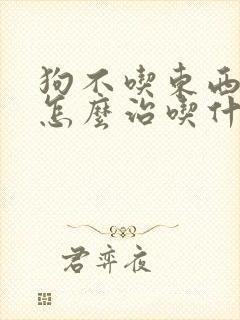 狗不喫東西
怎麼治喫什
君弈夜